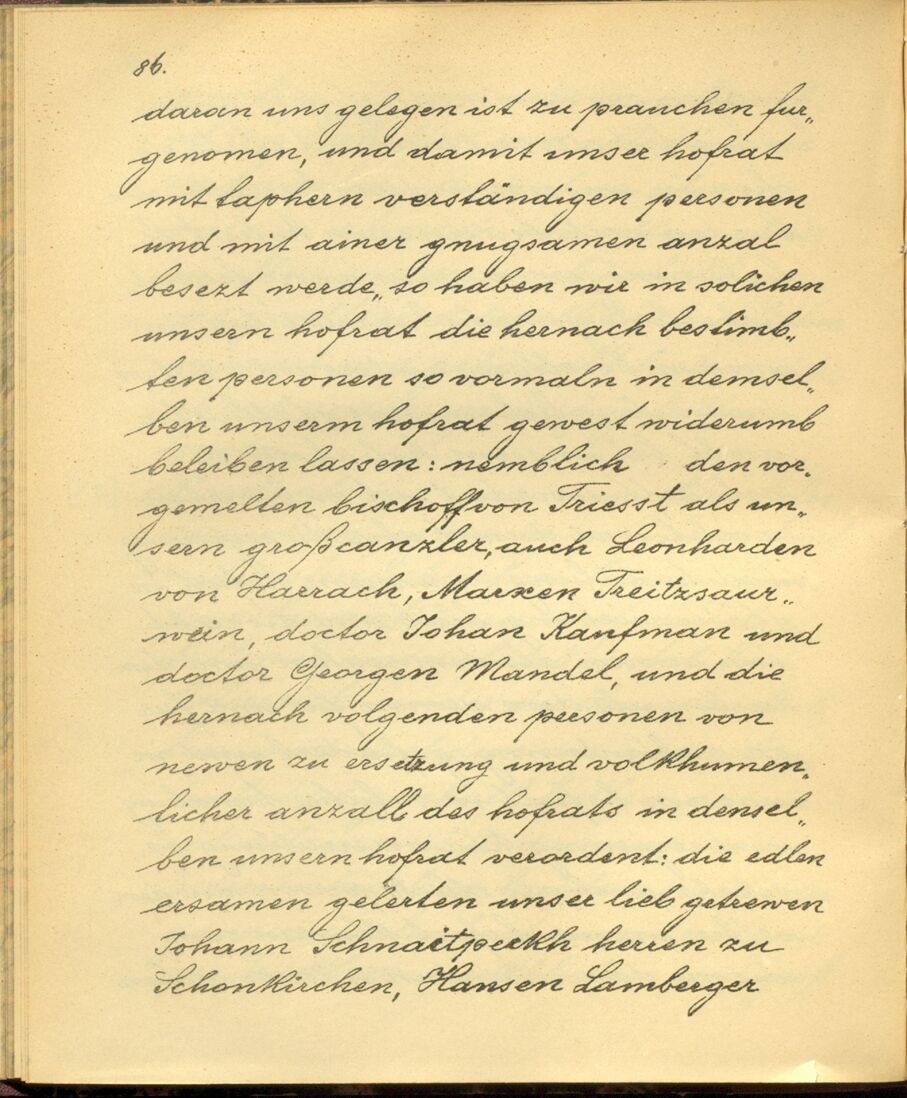 86.
daran uns gelegen ist zu prauchen fur„
genomen, und damit unser hofrat
mit taphern verständigen personen
und mit ainer gnugsamen anzal
besezt werde„ so haben wir in solichen
unsern hofrat die hernach bestimb„
ten personen so vormaln in demsel„
ben unserm hofrat gewest widerumb
beleiben lassen: nemblich den vor„
gemelten bischoff von Triesst als un„
sern großcanzler, auch Leonharden
von Harrach, Marxen Treitzsaur„
wein, doctor Johan Kaufman und
doctor Georgen Mandel, und die
hernach volgenden personen von
newen zu ersetzung und volkhumen„
licher anzall des hofrats in densel„
ben unsern hofrat verordent: die edlen
ersamen gelerten unser lieb getrewen
Johann Schnaitpeckh herren zu
Schonkirchen, Hansen Lamberger